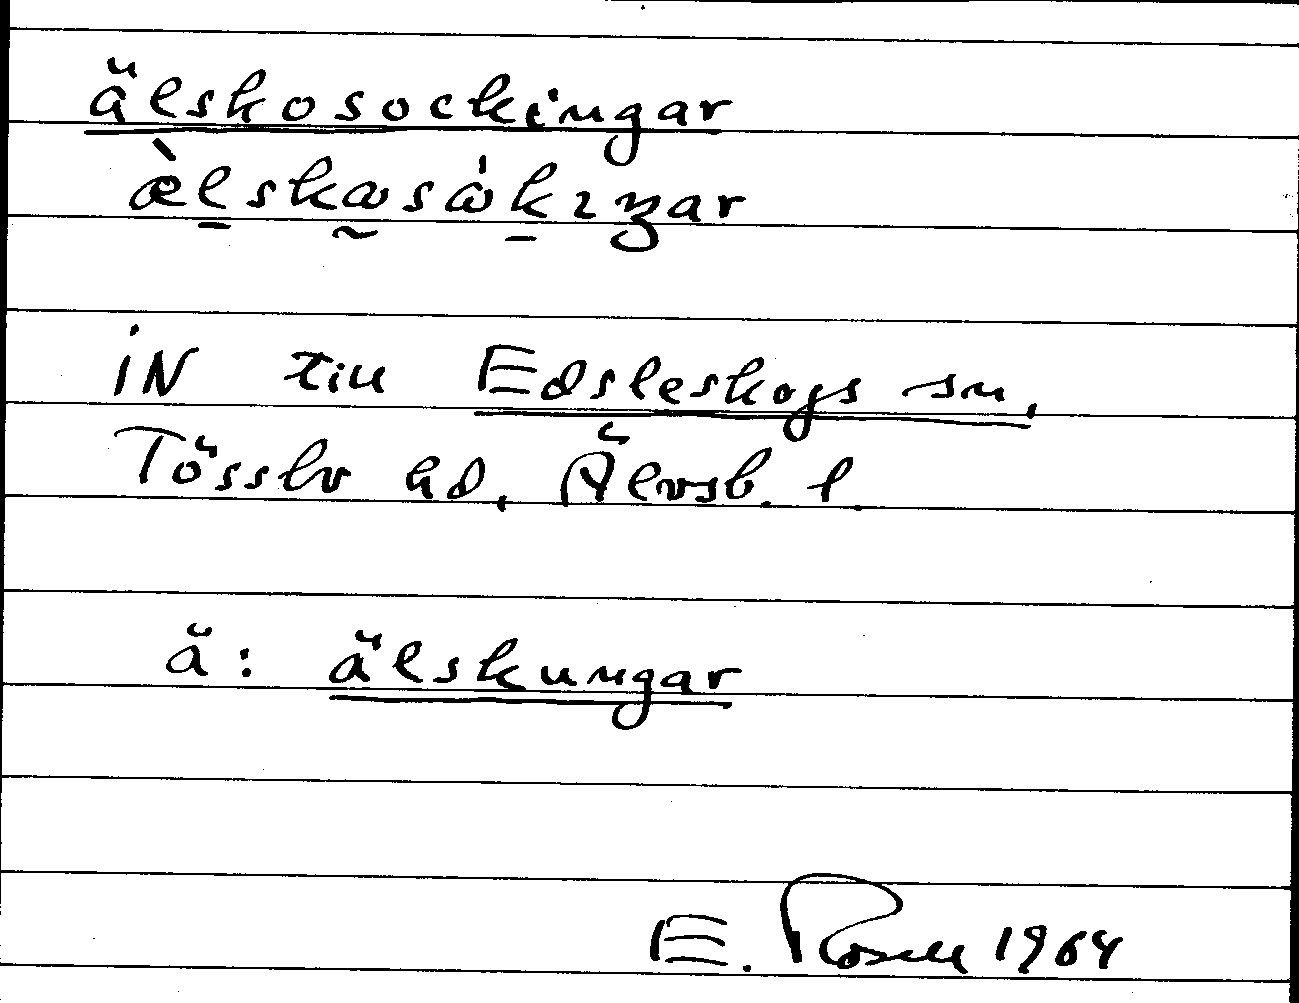 älskosockingar
æ̀lskæsåkıŋar
iN till Edsleskogs sn,
Tössbo hd, Älvsb. l.
ä: älskungar
E. Rosell 1964